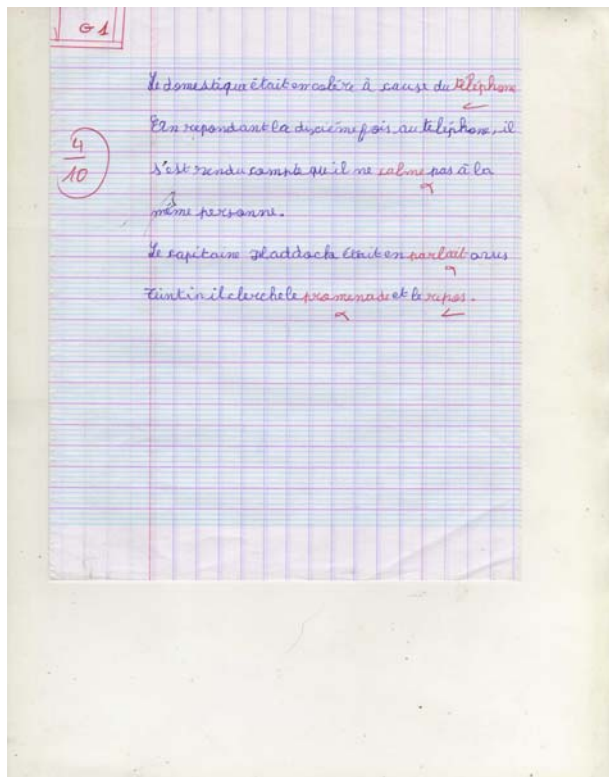 G1
Le domestique était en colère à cause du téléphone
En repondant la dixième fois, au téléphone, il
4/10
s'est rendu compte qu'il ne calme pas à la
même personne.
Le capitaine Haddock était en parlait avec
Tintin il cherche le promenade et le repos.